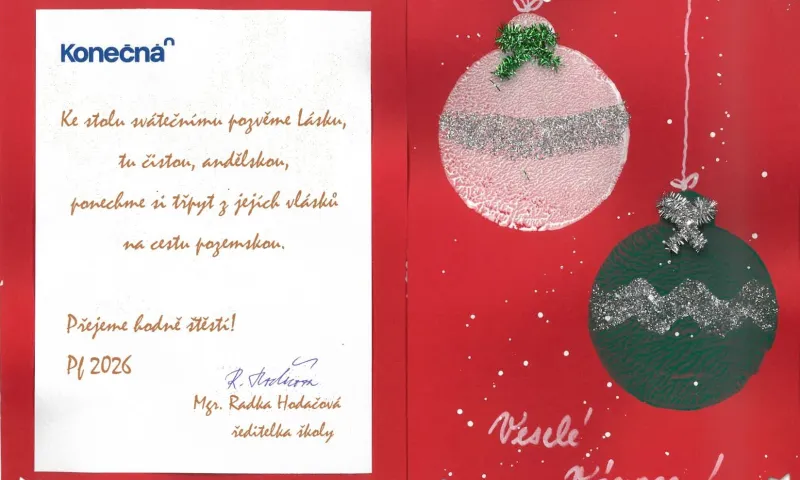 Konečná
Ke stolu svátečnímu pozvěme Lásku,
tu čistou, andělskou,
ponechme si třpyt z jejích vlásků
na cestu pozemskou.
Přejeme hodně štěstí!
Pf 2026
R. Hodačová
Mgr. Radka Hodačová
ředitelka školy
Veselé